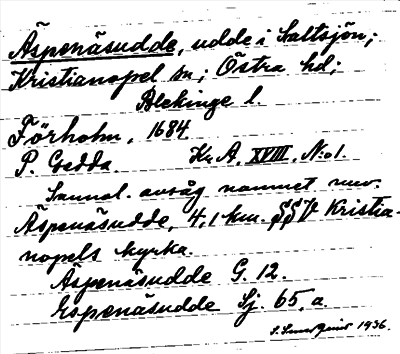 Äspenäsudde, udde i Saltsjön;
Kristianopel sn; Östra hd;
Blekinge l.
Förholm, 1684
P. Gedda. Kr. A. XVIII. N:o 1.
Sannol. avsåg namnet nuv.
Äspenäsudde, 4,1 km. SSV Kristia-
nopels kyrka.
Äspenäsudde G. 12.
Espenäsudde Sj. 65, a.
1936.